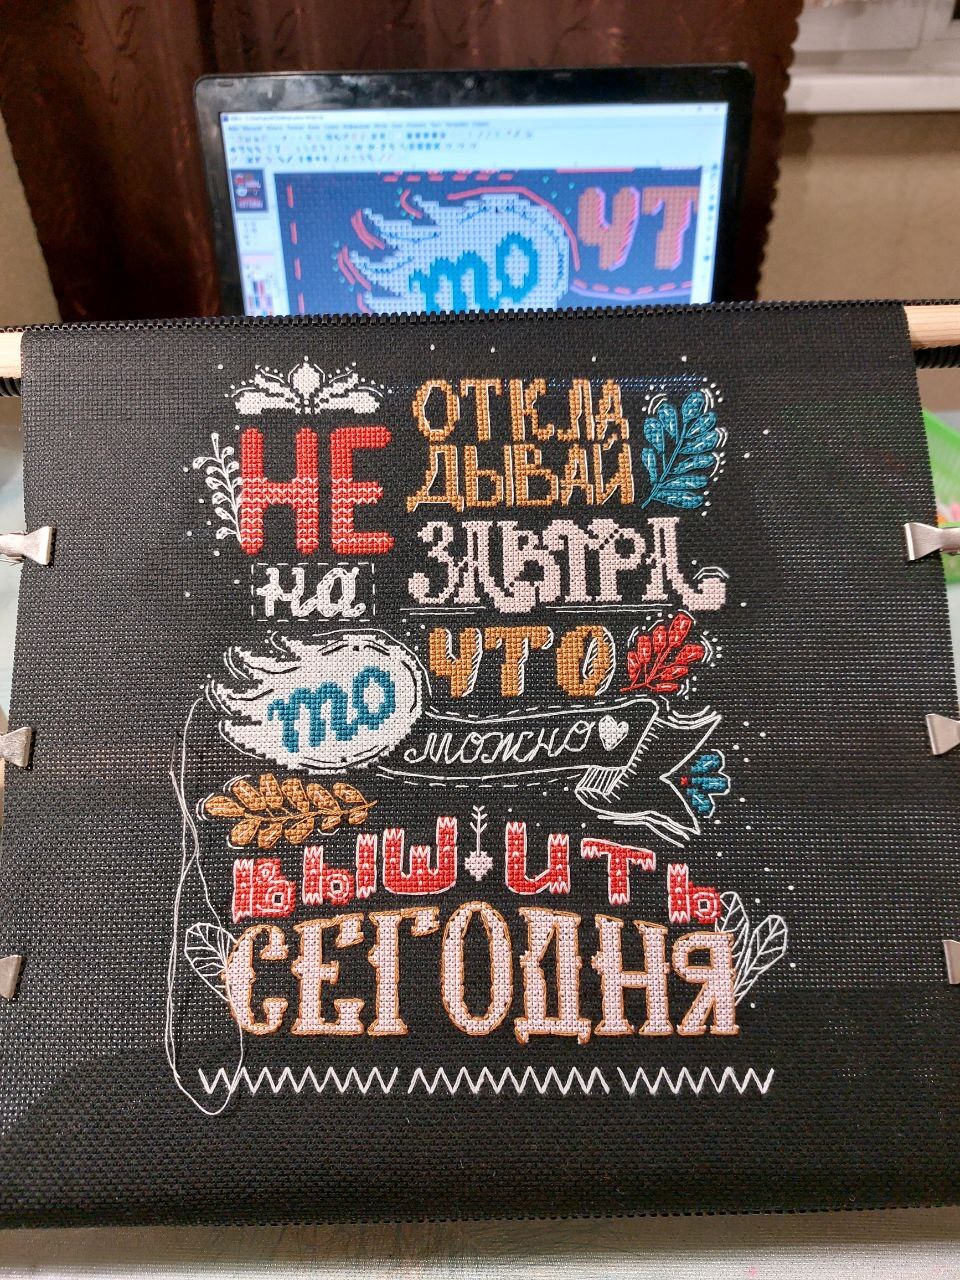 НЕ
ОТКЛА
ДЫВАЙ
на
ЗАВТРА
то
ЧТО
можно
ВЫШИТЬ
СЕГОДНЯ
то
ЧТ